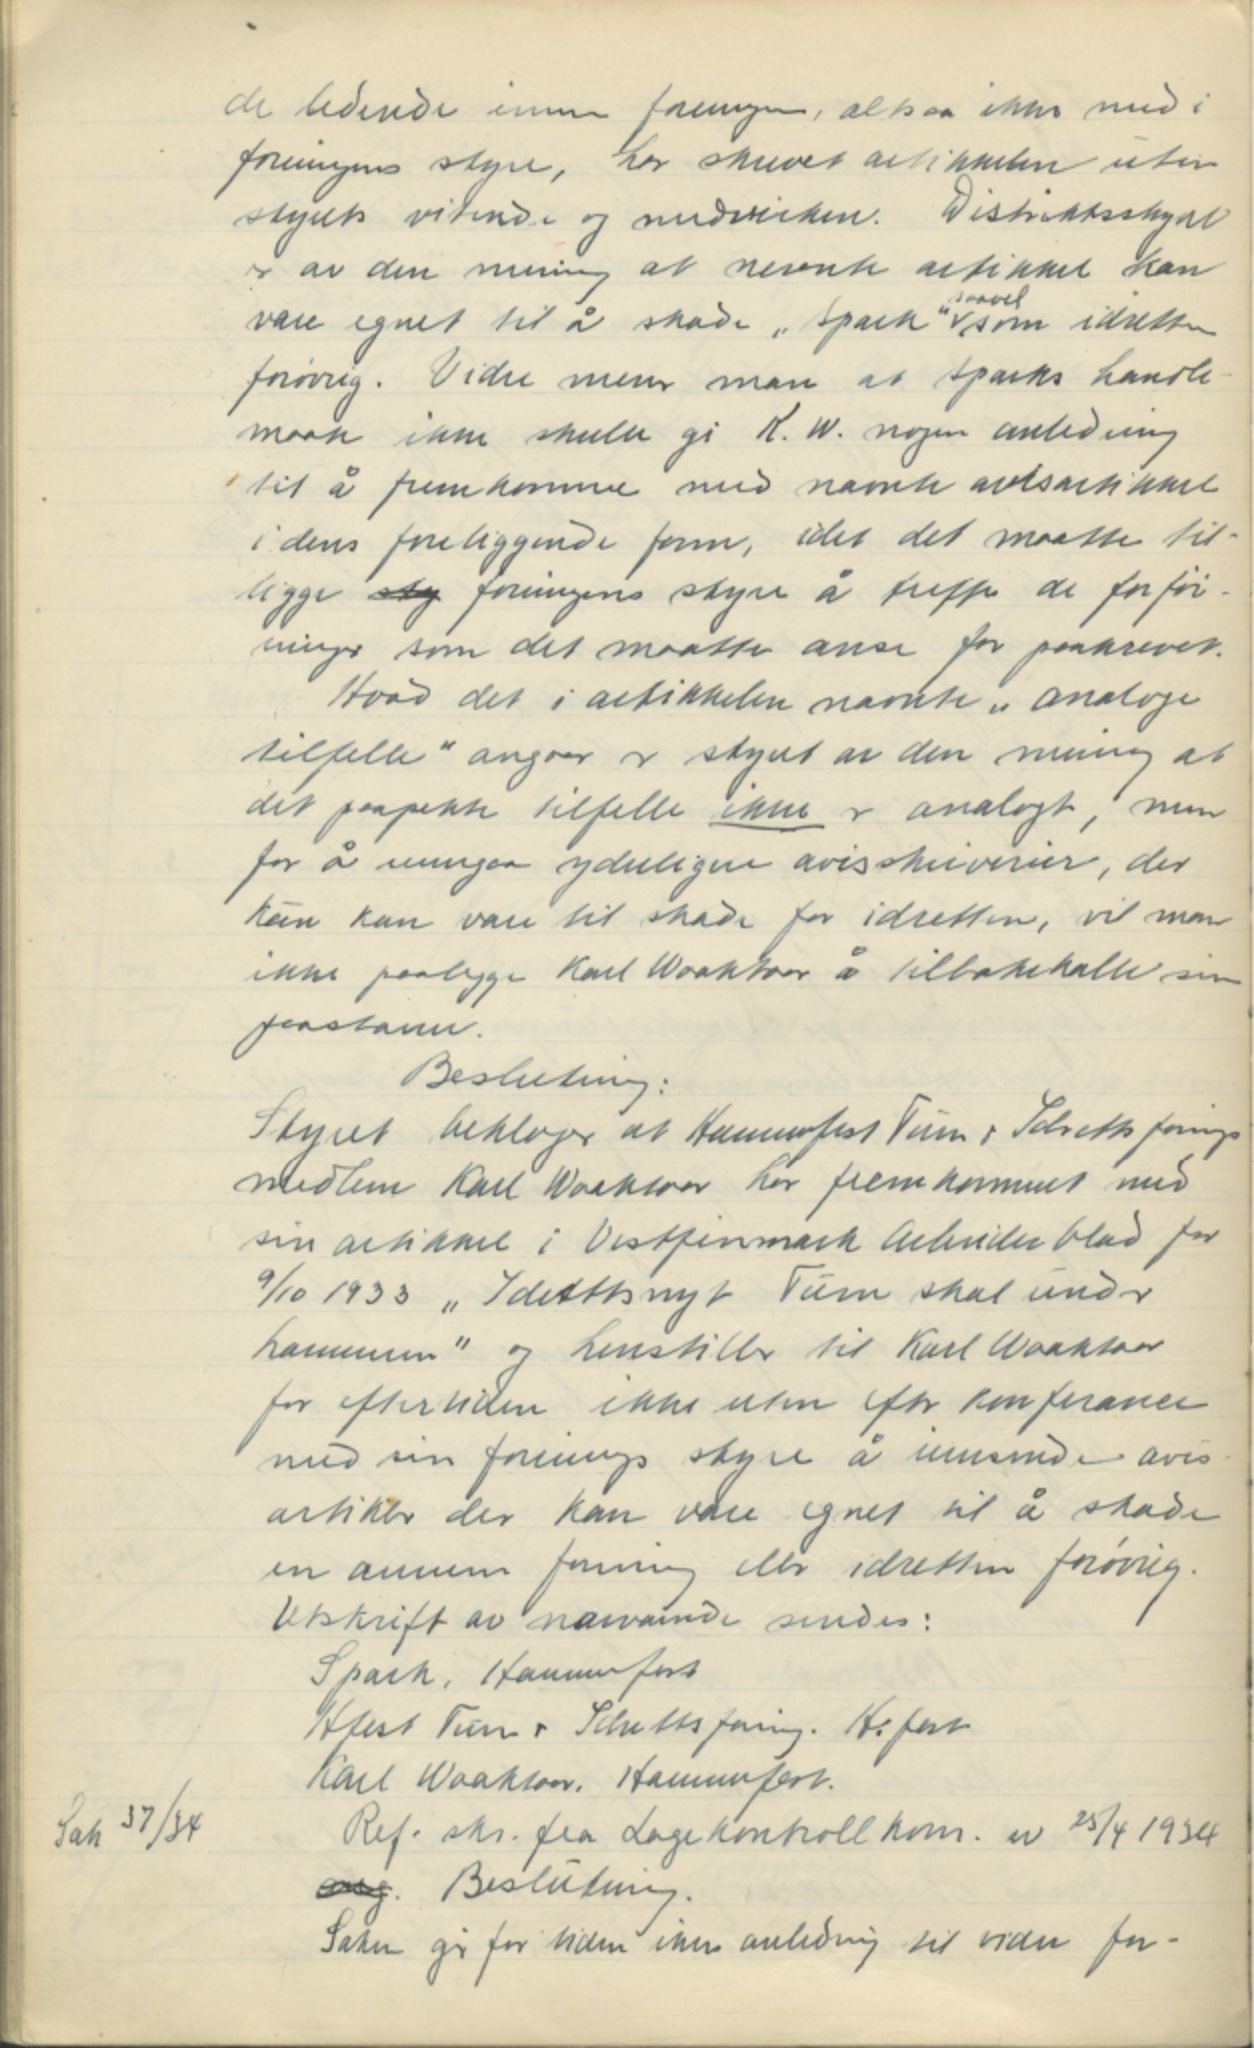 de ledende innen foreningen, altsaa ikke med i
foreningens styre, har skrevet artikkelen uten
styrets vitende og medvirken. Distriktsstyret
er av den mening at nevnte artikkel kan
være egnet til å skade „Spark" saavel som idretten
forøvrig. Vidre mener man at Sparks handle-
maate ikke skulde gi K. W. nogen anledning
til å fremkomme med nævnte avisartikkel
i dens foreliggende form, idet det maatte til-
ligge foreningens styre å treffe de forføi-
ninger som det maatte anse for paakrevet.
Hvad det i artikkelen nævnte „analoge
tilfelle" angaar er styret av den mening at
det paapekte tilfelle ikke er analogt, men
for å undgaa yderligere avisskriverier, der
kun kan være til skade for idretten, vil man
ikke paalegge Karl Waaktaar å tilbakekalle sin
paastann.
Beslutning:
Styret beklager at Hammerfest Turn & Idrettsforenings
medlem Karl Waaktaar har fremkommet med
sin artikkel i Vestfinmark Arbeiderblad for
9/10 1933 „Idrettsnyt Turn skal under
hammeren" og henstiller til Karl Waaktaar
for eftertiden ikke uten efter konferance
med sin forenings styre å innsende avis-
artikler der kan være egnet til å skade
en annen forening eller idretten forøvrig.
Utskrift av nærværende sendes:
Spark, Hammerfest
Hfest Turn & Idrettsforening. H.fest
Karl Waaktaar. Hammerfest.
Sak 37/34 Ref. skr. fra Lagekontrollkom. av 25/4 1934
ang. Beslutning.
Saken gir for tiden ikke anledning til videre for-